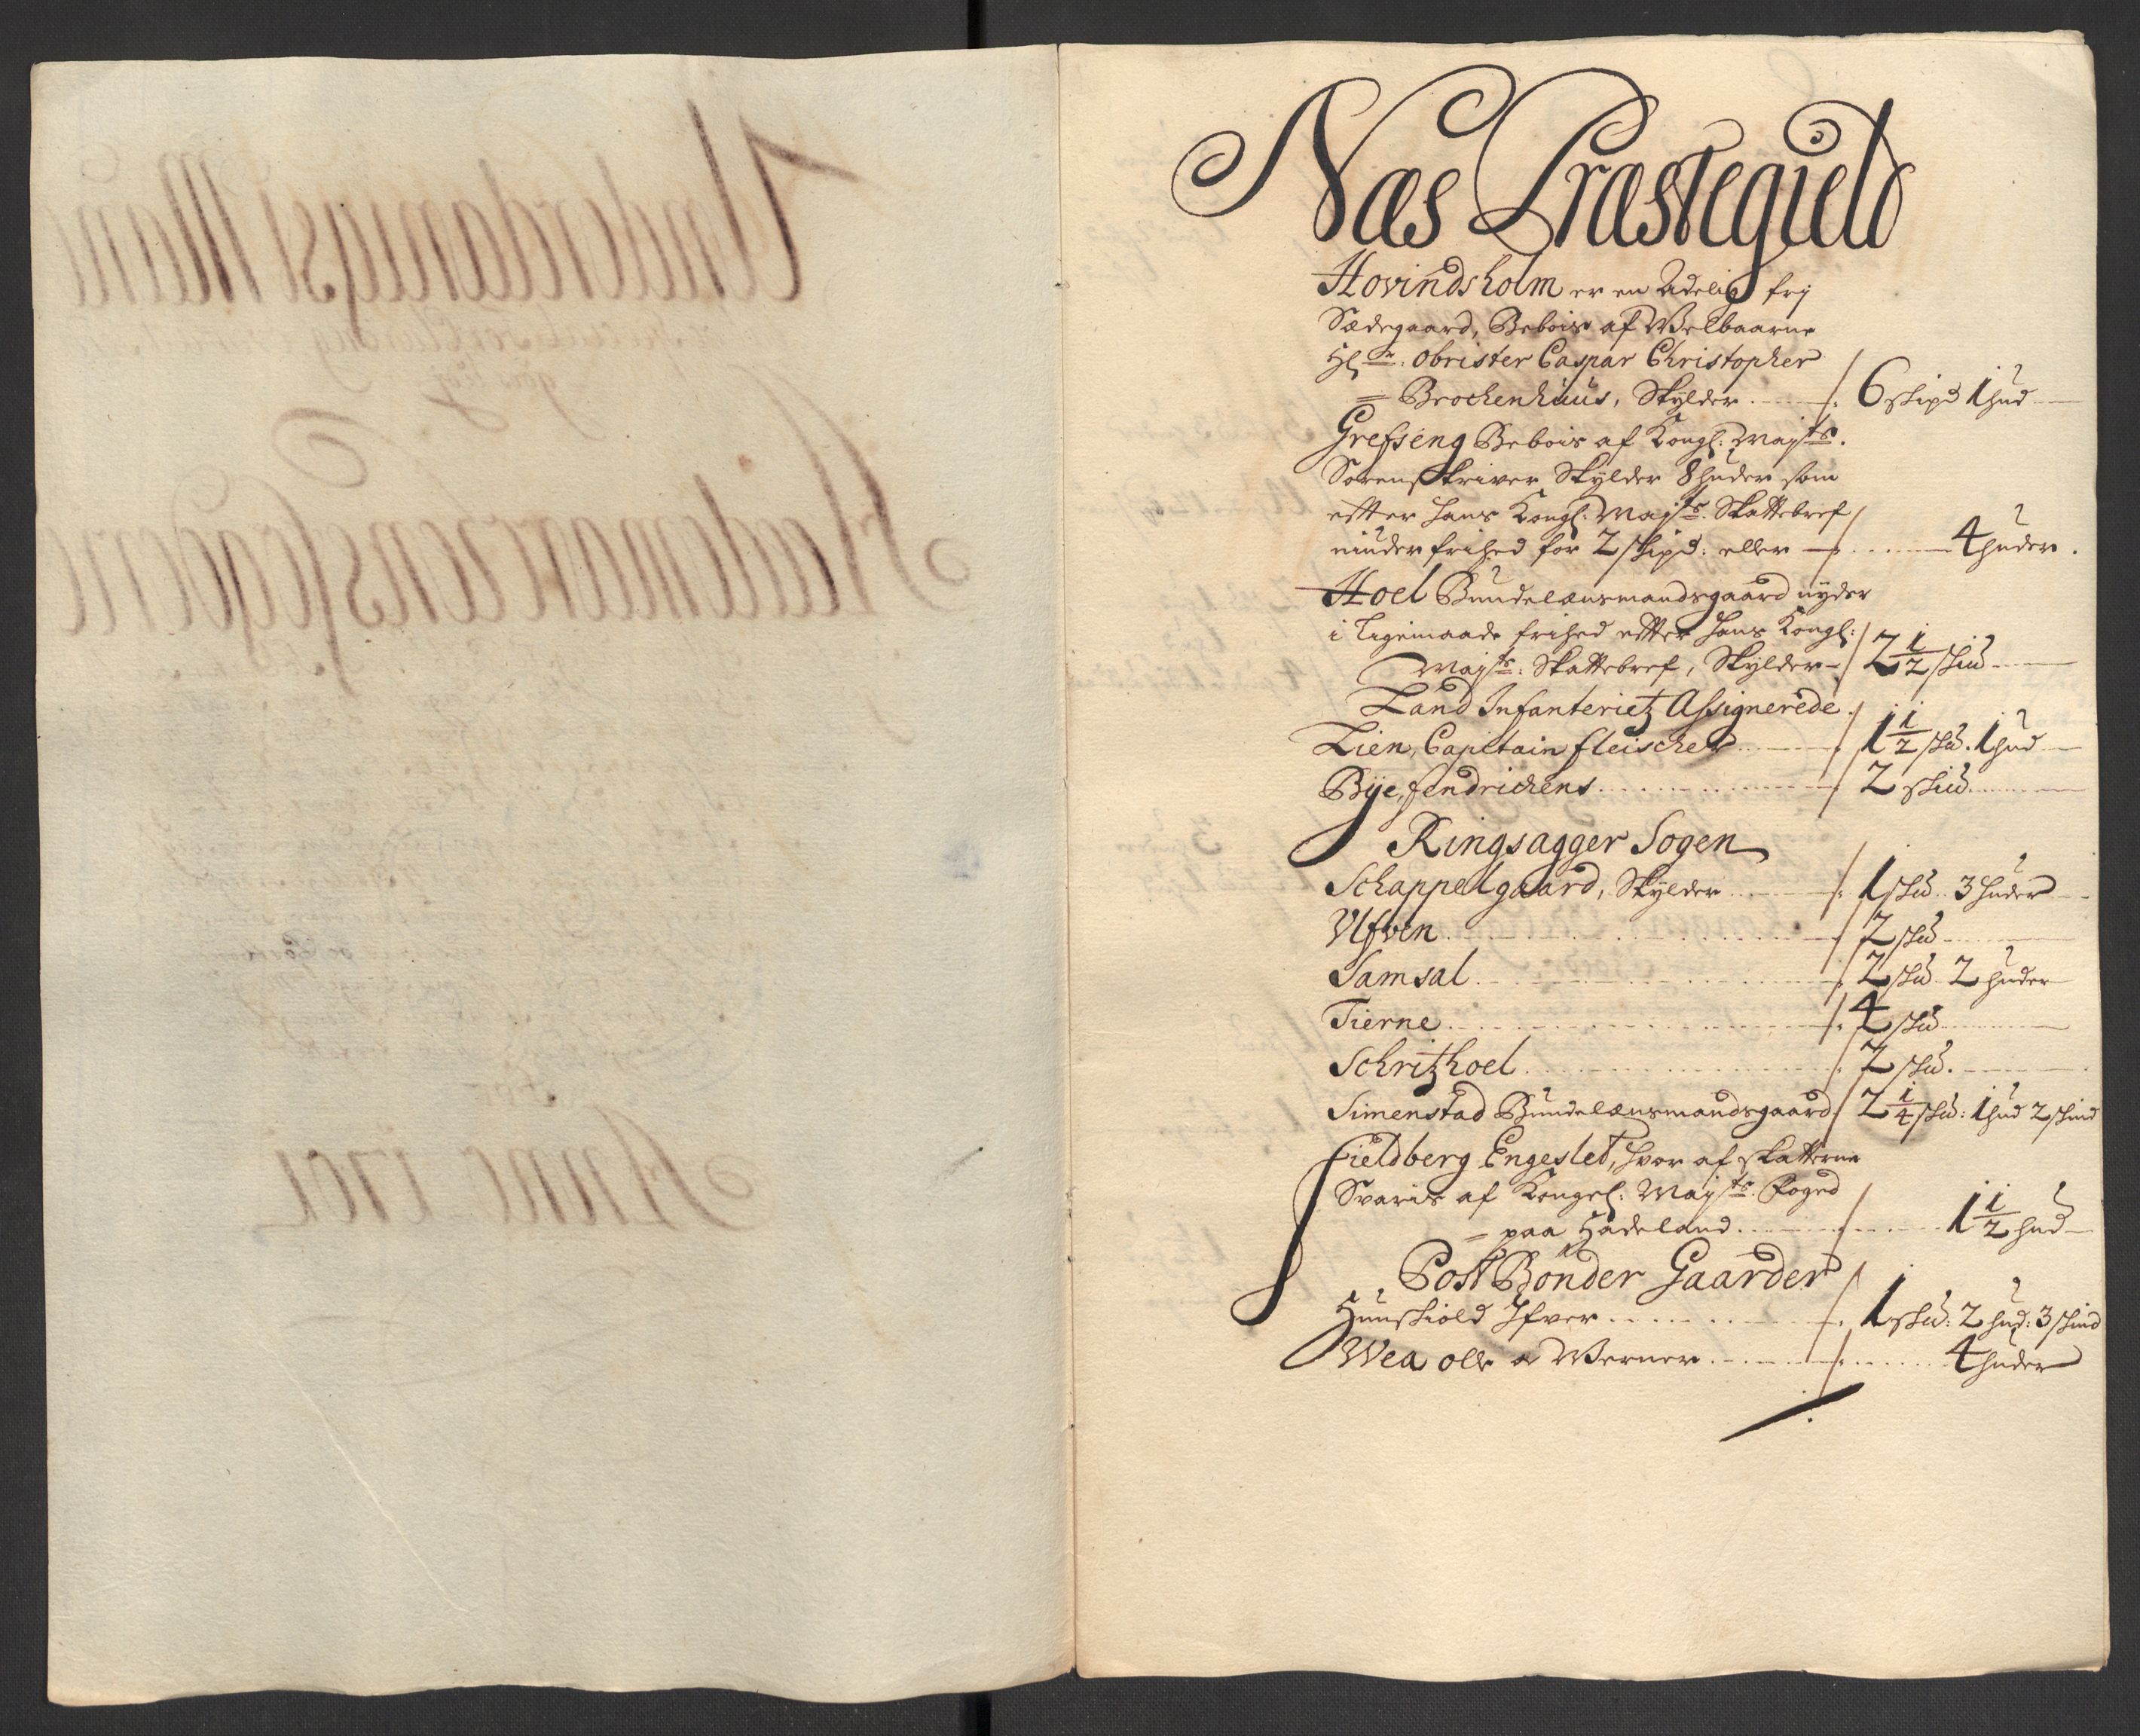 Næs Præstegield
Hovindsholm er en Adelig frj
Sædegaard, Bebois af Welbaarne
Hr. Obrister Caspar Christopher
= Brochenhuus, Skylder 6 skipd 1 hud
Grefseng Bebois af Kongl: Mayts.
Sorenskriver Skylder 8 huder som
efter hans Kongl: Mayts. Skattebref
niuder frihed for 2 skipd: eller 4 huder.
Hoel Bundelænsmandsgaard nyder
i ligemaade frihed efter hans Kongl:
Mayts: Skattebref, Skylder 2 1/2 skud
Land Infanterietz Assignerede
Lien, Capitain fleischer 1 1/2 skud. 1 hud
Bye, fendrichens 2 skud
Ringsagger Sogen
Schappelgaard, Skylder 1 skud 3 huder
Ulfven 2 skud
Samsal 2 skud 2 huder
Tierne 4 skud
Schritzhoel 2 skud.
Simenstad Bundelænsmandsgaard 2 1/4 skud: 1 hud 2 skind
Fieldberg Engeslet, hvor af skatterne
Svaris af Kongel: Mayts. foged
= paa Hadeland 1 1/2 hud
Post Bønder Gaarder
Hunskiold Ifver 1 skud: 2 hud: 3 skind
Wea olle a Werner 4 huder